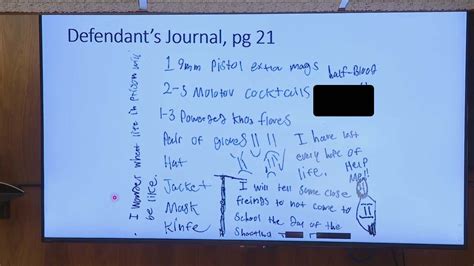 Defendant's Journal, pg 21
I wonder what life in prison will
be like.
1 9mm Pistol extra mags
half-Blood
2-5 Molotov cocktails
1-3
Pair of gloves
Hat
Jacket
Mask
Kinfe
I have lost
every hope of
life.
Help
Me!!
I will tell some close
freinds to not come to
school the day of the